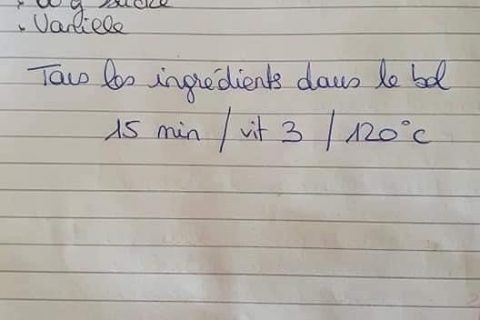 g sucre
. Vanille
Tous les ingrédients dans le bol
15 min / vit 3 / 120°c